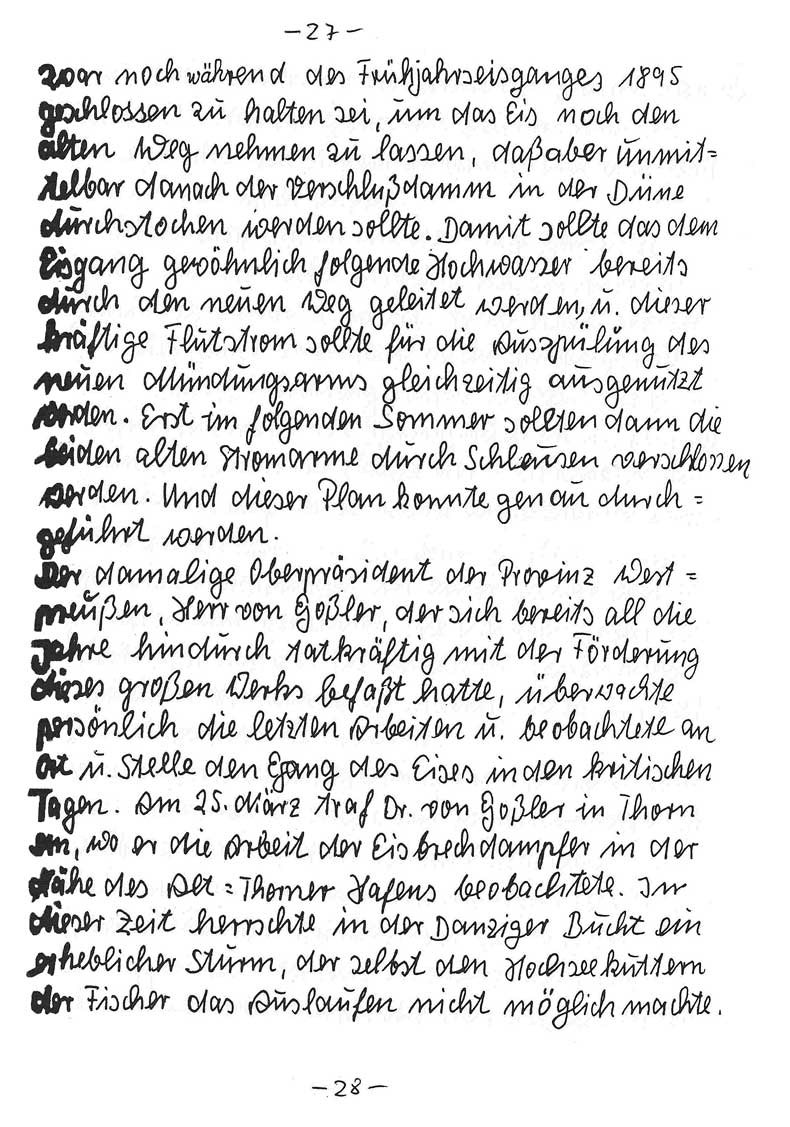 -27-
zwar noch während des Frühjahrseisganges 1895
geschlossen zu halten sei, um das Eis noch den
alten Weg nehmen zu lassen, daß aber unmit=
telbar danach der Verschlußdamm in der Düne
durchstochen werden sollte. Damit sollte das dem
Eisgang gewöhnlich folgende Hochwasser bereits
durch den neuen Weg geleitet werden, u. dieser
kräftige Flutstrom sollte für die Ausspülung des
neuen Mündungsarms gleichzeitig ausgenutzt
werden. Erst im folgenden Sommer sollten dann die
beiden alten Stromarme durch Schleusen verschlossen
werden. Und dieser Plan konnte genau durch=
geführt werden.
Der damalige Oberpräsident der Provinz West=
preußen, Herr von Goßler, der sich bereits all die
Jahre hindurch tatkräftig mit der Förderung
dieses großen Werks befaßt hatte, überwachte
persönlich die letzten Arbeiten u. beobachtete an
Ort u. Stelle den Gang des Eises in den kritischen
Tagen. Am 25. März traf Dr. von Goßler in Thorn
ein, wo er die Arbeit der Eisbrechdampfer in der
Nähe des Alt=Thorner Hafens beobachtete. In
dieser Zeit herrschte in der Danziger Bucht ein
erheblicher Sturm, der selbst den Hochseekuttern
der Fischer das Auslaufen nicht möglich machte.
-28-